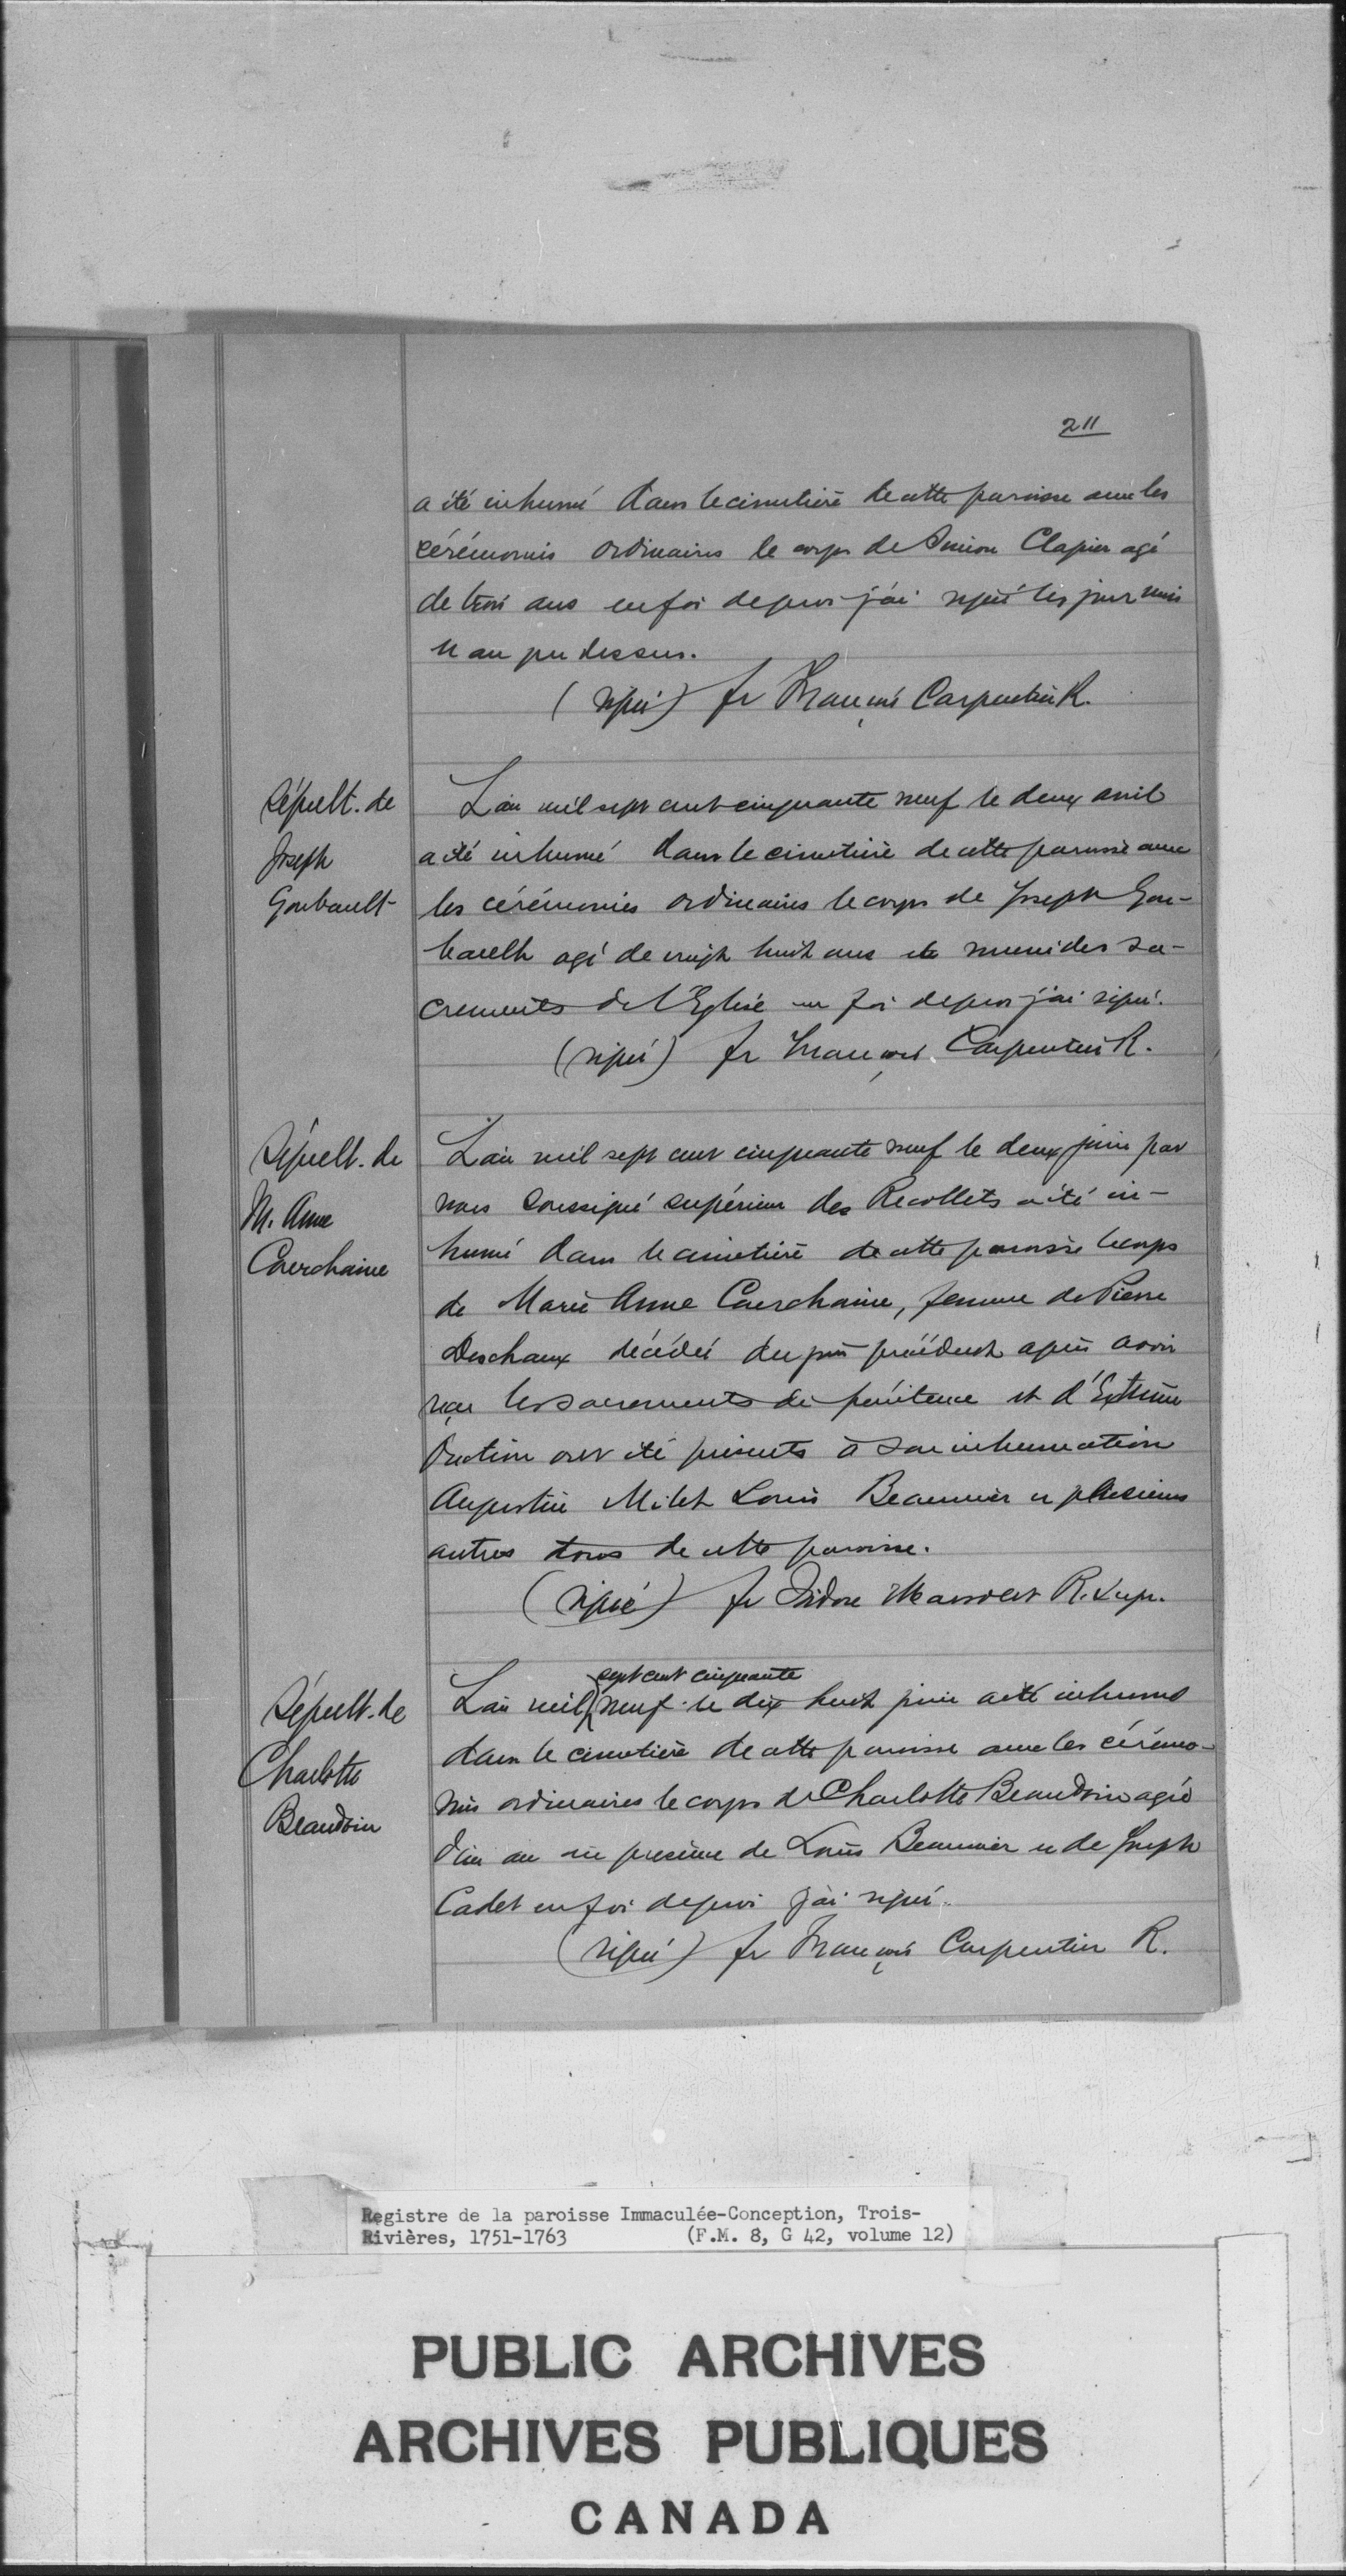 211
a été inhumé dans le cimetière de cette paroisse avec les
cérémonies ordinaires le corps de Simon Clapier agé
de trois ans en foi de quoi j'ai signé les jour mois
et an que dessus.
(signé) fr François Carpentier R.
Sépult. de
Joseph
Goubault
L'an mil sept cent cinquante neuf le deux avril
a été inhumé dans le cimetière de cette paroisse avec
les cérémonies ordinaires le corps de Joseph Gou-
bault agé de vingt huit ans et muni des sa-
crements de l'Eglise en foi de quoi j'ai signé.
(signé) fr François Carpentier R.
Sépult. de
M. Anne
Courchaine
L'an mil sept cent cinquante neuf le deux juin par
nous soussigné supérieur des Recollets a été in-
humé dans le cimetière de cette paroisse le corps
de Marie Anne Courchaine, femme de Pierre
Deschaux décédée du jour précédent après avoir
reçu les sacrements de pénitence et d'Extrême
Onction ont été présents à son inhumation
Augustin Milet Louis Beaumier et plusieurs
autres tous de cette paroisse.
(signé) fr Isidore R. Sup.
Sépult. de
Charlotte
Beaudoin
sept cent cinquante
L'an mil neuf le dix huit juin a été inhumé
dans le cimetière de cette paroisse avec les cérémo-
nies ordinaires le corps de Charlotte Beaudoin agée
d'un an en présence de Louis Beaumier et de Joseph
Cadet en foi de quoi j'ai signé.
(signé) fr François Carpentier R.
Registre de la paroisse Immaculée-Conception, Trois-
Rivières, 1751-1763 (F.M. 8, G 42, volume 12)
PUBLIC ARCHIVES
ARCHIVES PUBLIQUES
CANADA